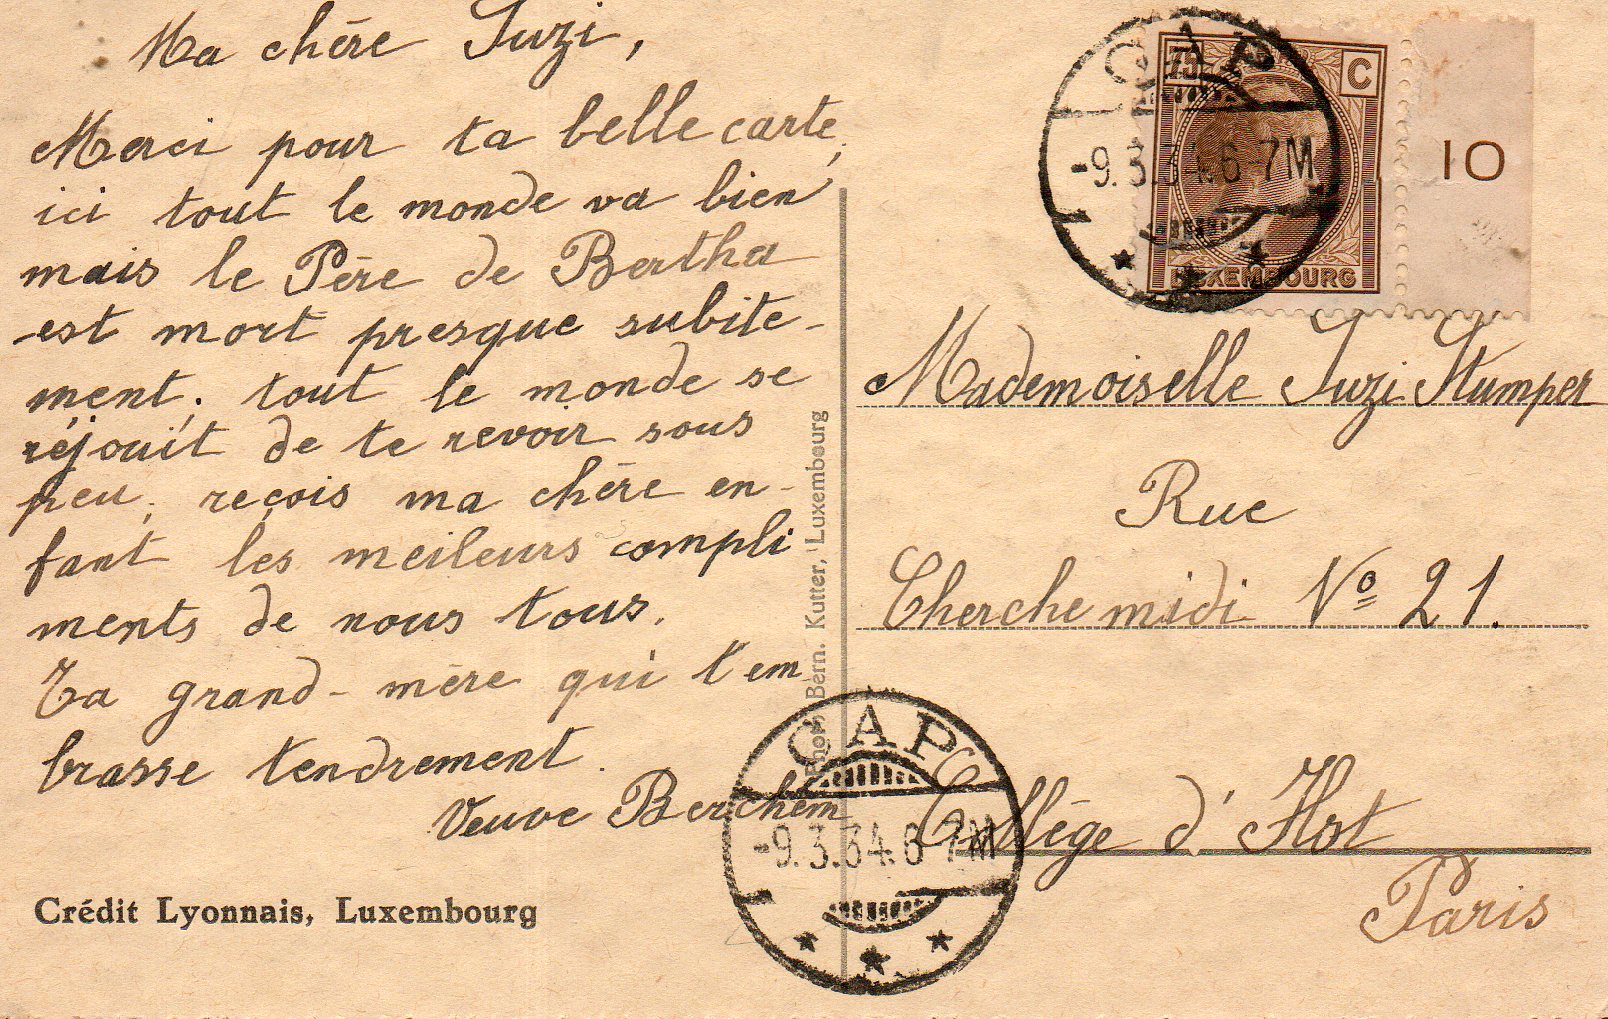 Ma chère Suzi,
Merci pour ta belle carte,
ici tout le monde va bien
mais le Père de Bertha
est mort presque subite-
ment; tout le monde se
réjouit de te revoir sous
peu, reçois ma chère en-
fant les meileurs compli
ments de nous tous.
Ta grand-mère qui t'em
brasse tendrement.
Veuve Berchem
Crédit Lyonnais, Luxembourg
Phot. Bern. Kutter, Luxembourg
CAP
-9.3.34.6-7M
75 C
LUXEMBOURG
10
Mademoiselle Suzi Stumper
Rue
Cherche midi Nº 21.
Collège d'Hst
Paris
CAP
-9.3.34.6-7M